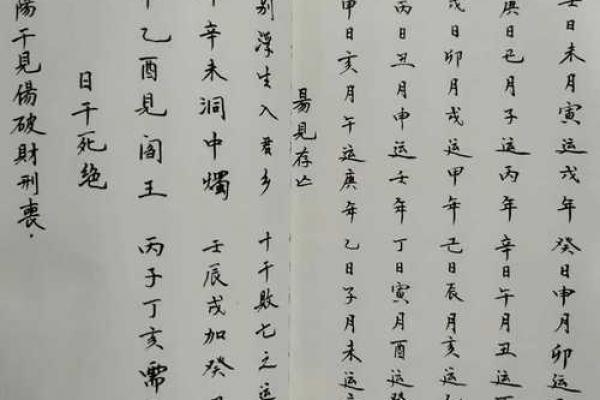 壬日未月寅运戌年癸日申月卯运
庚日巳月子运丙年辛日午月丑运
戊日卯月戌运甲年己日辰月亥运
丙日丑月申运壬年丁日寅月酉运癸
甲日亥月午运庚年乙日子月未运
易見存亡
别浮生入君乡 十干敗亡之运
辛未洞中燭 壬辰戌加癸
乙酉見阎王 丙子丁亥需
日干死绝
陽干見傷破財刑喪.